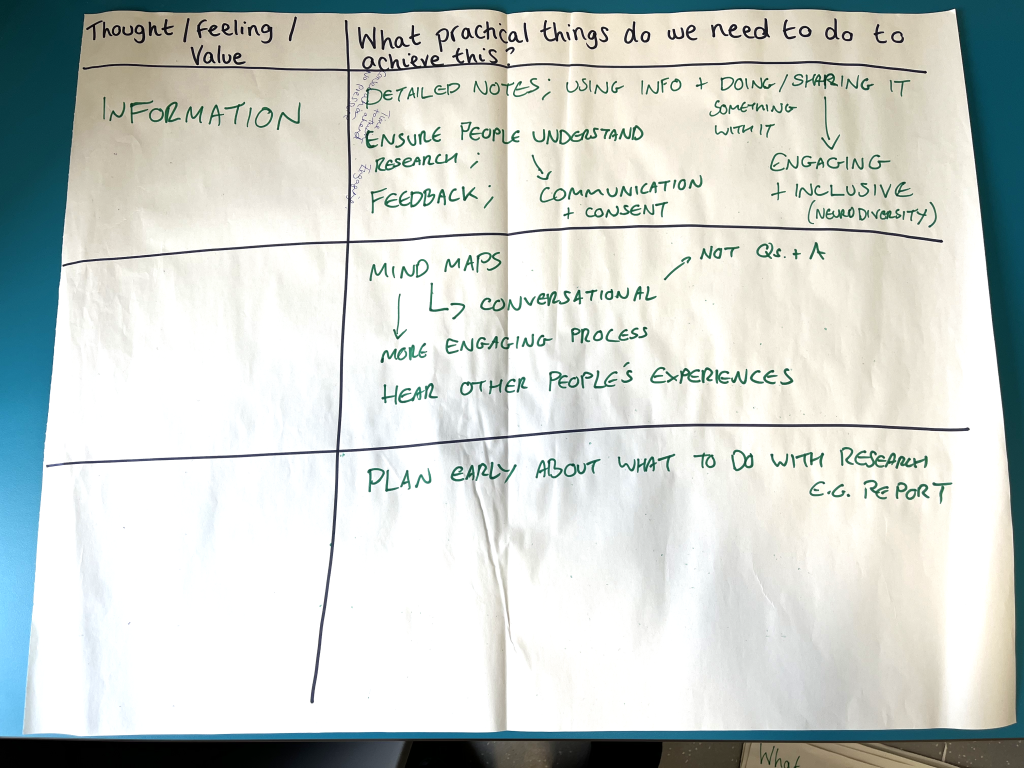 Thought / Feeling /
Value
What practical things do we need to do to
achieve this?
INFORMATION
DETAILED NOTES; USING INFO + DOING / SHARING IT
SOMETHING
WITH IT
ENSURE PEOPLE UNDERSTAND
RESEARCH;
ENGAGING
+ INCLUSIVE
(NEURODIVERSITY)
FEEDBACK;
COMMUNICATION
+ CONSENT
MIND MAPS
NOT Qs. + A
CONVERSATIONAL
MORE ENGAGING PROCESS
HEAR OTHER PEOPLE'S EXPERIENCES
PLAN EARLY ABOUT WHAT TO DO WITH RESEARCH
E.G. REPORT
What